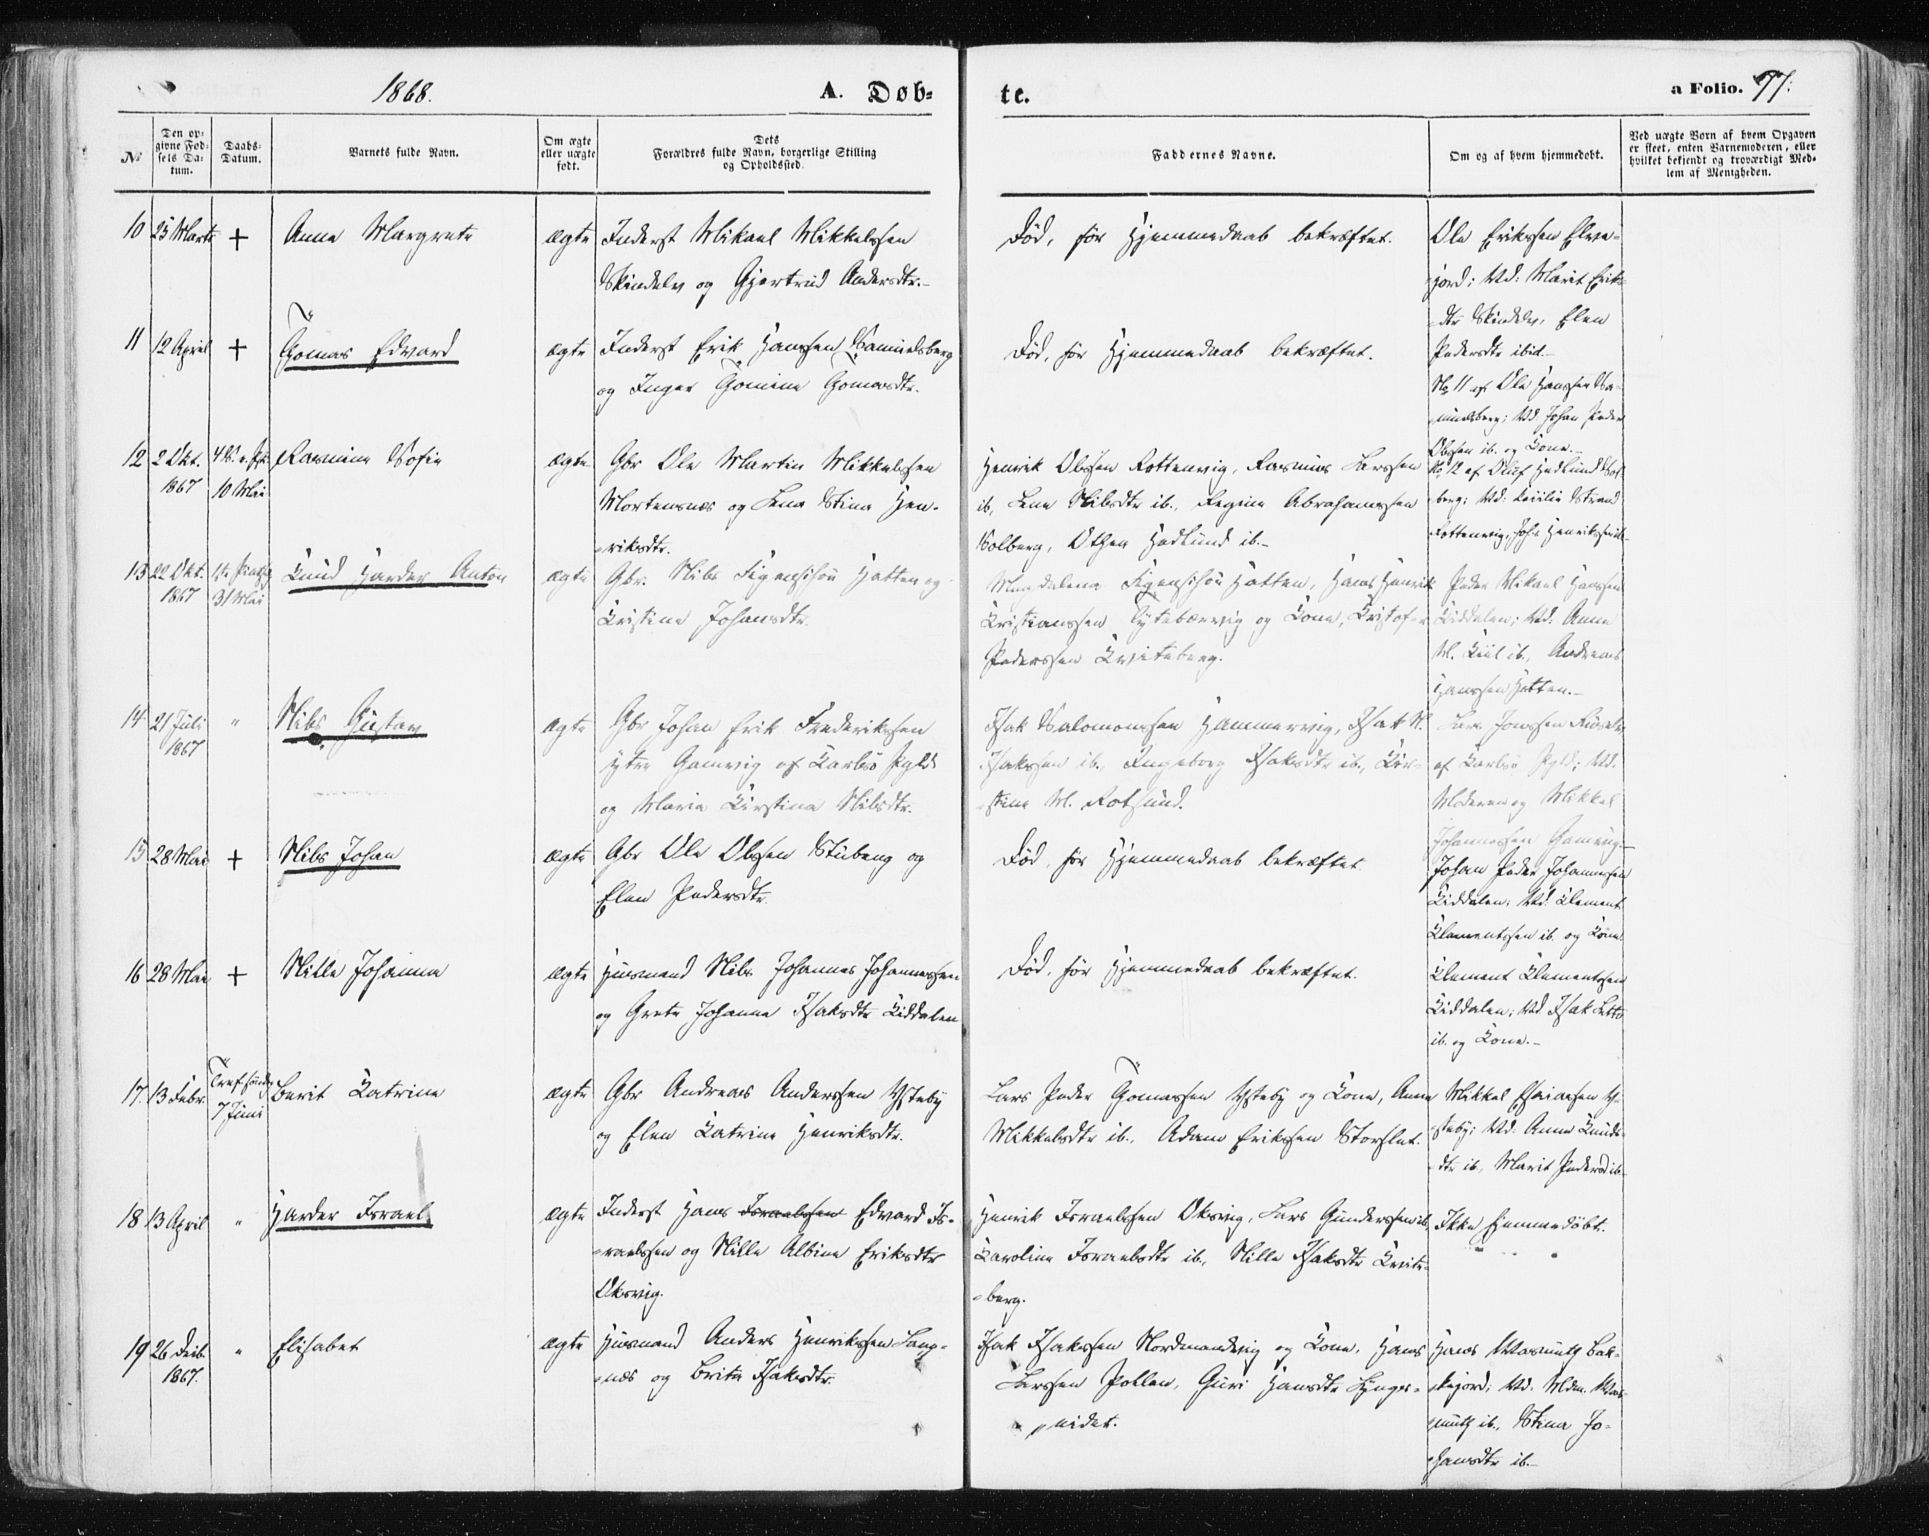 1868.
A. Døb-
te.
a Folio. 77.
№
Den op-
givne Fød-
sels Da-
tum.
Daabs-
Datum.
Barnets fulde Navn.
Om ægte
eller uægte
født.
Dets
Forældres fulde Navn, borgerlige Stilling
og Opholdssted.
Faddernes Navne.
Om og af hvem hjemmedøbt.
Ved uægte Børn af hvem Opgaven
er skeet, enten Barnemoderen, eller
hvilket bekjendt og troværdigt Med-
lem af Menigheden.
10 25 Marts + Anne Margrete ægte Inderst Mikael Mikkelssen
Skindelv og Gjertrud Andersdtr.-
Død, før Hjemmedaab bekræftet.
Ole Erikssen Elve-
-jord; Vd: Marit Erik-
-dtr Skindelv, Elen
Pedersdtr ibid.-
11 12 April + Tomas Edvard ægte Inderst Erik Hanssen Samuelsberg
og Inger Tomine Tomasdtr.
Død, før Hjemmedaab bekræftet.
No 11 af Ole Hanssen Sa-
muelsberg; Vd Johan Peder
Olssen ib. og Kone.-
12 2 Okt. 1867 10 Mai Rasmine Sofie ægte Gbr Ole Martin Mikkelssen
Mortensnæs og Lena Stina Hen-
-riksdtr.
Henrik Olssen Rottenvig, Rasmus Larssen
ib, Lene Nilsdtr ib., Regine Abrahamssen
Solberg, Othea Hedlund ib.-
No 12 af Oluf Hedlund Sol-
berg; Vd: Cecilie Strand
Rottenvig, Joh. Henrikssen ib.-
13 22 Okt. 1867 31 Mai Knud Harder Anton ægte Gbr. Nils Figenschou Hatten og
Kristine Johansdtr.
Magdalena Figenschou Hatten, Hans Henrik
Kristianssen Tytebærvig og Kone, Kristofer
Pederssen Kviteberg.
Peder Mikael Hanssen
Kiddalen; Vd. Anne
M. Kiil ib., Andreas
Hanssen Hatten.-
14 21 Juli 1867 " Nils Gustav ægte Gbr Johan Erik Frederikssen
ytre Gamvig af Karlsø Pgld
og Maria Kirstina Nilsdtr.
Isak Salomonssen Hammervig, Isak N.
Isakssen ib., Ingeborg Isaksdtr ib., Kir-
-stine M. Rotsund.
Lars Jonssen
af Karlsø Pgld; Vd.
Moderen og Mikkel
Johannessen Gamvig-
15 28 Mai + Nils Johan ægte Gbr Ole Olssen Stubeng og
Elen Pedersdtr.
Død, før Hjemmedaab bekræftet.
Johan Peder Johannessen
Kiddalen; Vd. Klement
Klementssen ib. og Kone.
16 28 Mai + Nille Johanna ægte Husmand Nils Johannes Johannessen
og Grete Johanna Isaksdtr Kiddalen
Død, før Hjemmedaab bekræftet.
Klement Klementssen
Kiddalen; Vd. Isak
ib. og Kone.-
17. 13 Febr. Tref. Søndag 7 Juni Berit Katrine ægte Gbr Andreas Anderssen Ysteby
og Elen Katrine Henriksdtr.
Lars Peder Tomassen Ysteby og Kone, Anne
Mikkelsdtr ib., Adam Erikssen Storslet.
Mikkel Esaiassen Y-
steby; Vd: Anne Knuds-
-dtr ib., Marit Pedersd ib.-
18 13 April " Harder Israel ægte Inderst Hans Israelssen Edvard Is-
-raelssen og Nille Albine Eriksdtr
Oksvig.
Henrik Israelssen Oksvig, Lars Gunderssen ib,
Karoline Israelsdtr ib., Nille Isaksdtr Kvite-
-berg.
Ikke hjemmedøbt.
19 26 Decb. 1867. " Elisabet ægte Husmand Anders Henrikssen Lang-
-næs og Brita Isaksdtr.
Isak Isakssen Nordmandvig og Kone, Hans
Larssen Pollen, Guri Hansdtr Lynges-
-eidet.
Hans Wasmuth Bak-
-kejord; Vd. Mdm. Was-
-muth ib., Stina Jo-
-hansdtr ib.-